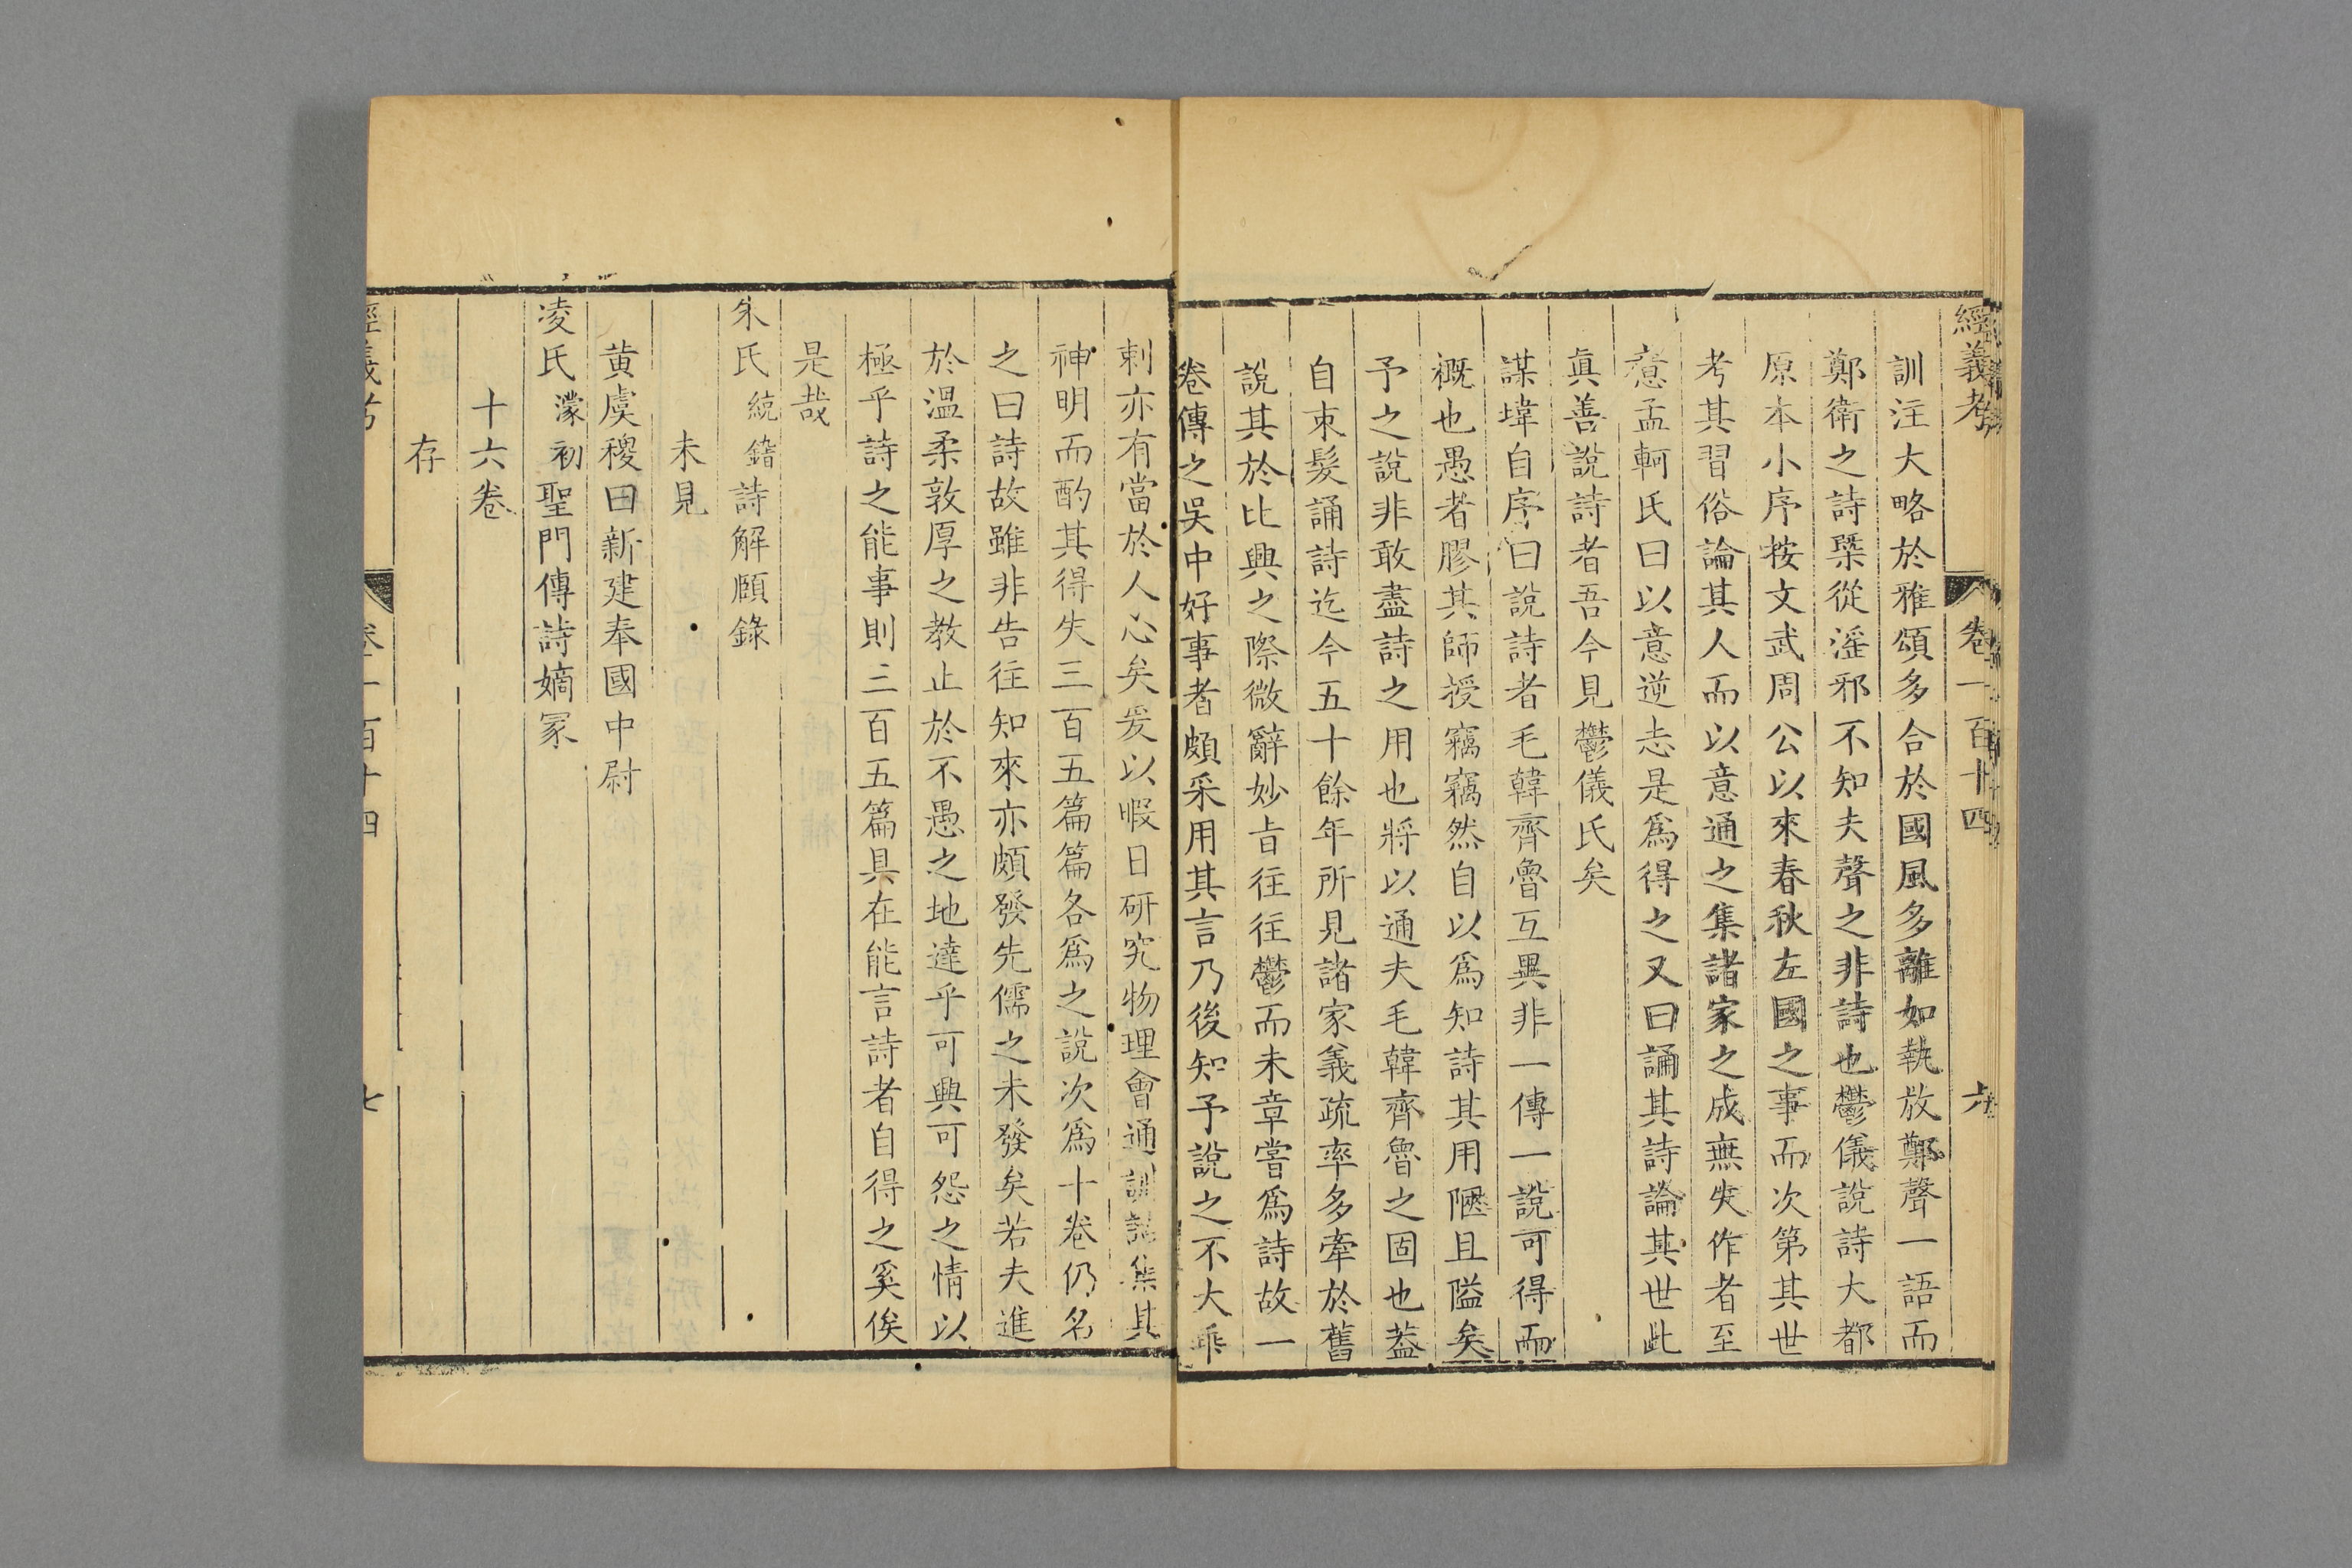 經義考 卷一百十四 六
訓注大略於雅頌多合於國風多離如執放鄭聲一語而
鄭衛之詩槩從淫邪不知夫聲之非詩也鬱儀說詩大都
原本小序按文武周公以來春秋左國之事而次第其世
考其習俗論其人而以意通之集諸家之成無失作者至
意孟軻氏曰以意逆志是爲得之又曰誦其詩論其世此
眞善說詩者吾今見鬱儀氏矣
謀㙔自序曰說詩者毛韓齊魯互異非一傳一說可得而
槪也愚者膠其師授竊竊然自以爲知詩其用陋且隘矣
予之說非敢盡詩之用也將以通夫毛韓齊魯之固也葢
自束髮誦詩迄今五十餘年所見諸家義疏率多牽於舊
說其於比興之際微辭妙旨往往鬱而未章嘗爲詩故一
卷傳之吳中好事者頗采用其言乃後知予說之不大乖
刺亦有當於人心矣爰以暇日研究物理會通訓詁集其
神明而酌其得失三百五篇篇各爲之說次爲十卷仍名
之曰詩故雖非告往知來亦頗發先儒之未發矣若夫進
於溫柔敦厚之教止於不愚之地達乎可興可怨之情以
極乎詩之能事則三百五篇具在能言詩者自得之奚俟
是哉
朱氏統𨮁詩解頤錄
未見
黃虞稷曰新建奉國中尉
凌氏濛初聖門傳詩嫡冢
十六卷
存
經義考 卷一百十四 七